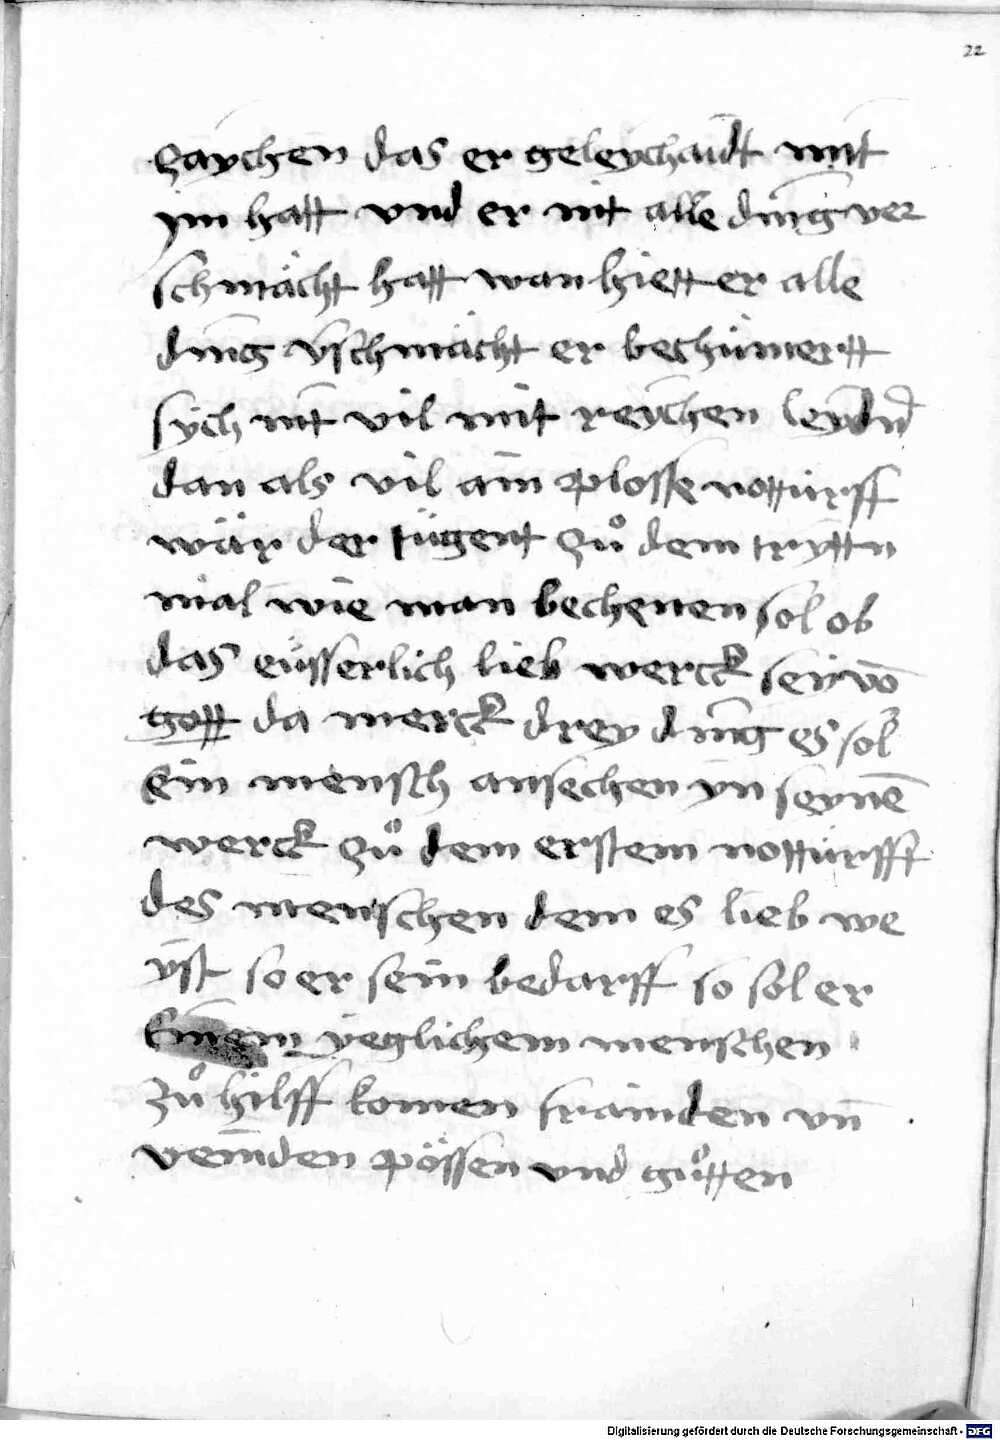 22
zaychen das er geleychaidt mit
ym hatt vnd er nit alle ding ver
schmächt hatt wan hiett er alle
ding v̄schmächt er bechümertt
sych nit vil mit reychen leyd
dan als vil ain plosse notturff
wär der tügent zů dem tryttn
mal wie man bechenen sol ob
das eüsserlich lieb werck sey vō
gott da merck drey ding es sol
ein mensch ansechen yn seynē
werck zů dem erstem notturfff
des menschen dem es lieb we
yst so er sein bedarff so sol er
Einem yeglichem menschen
zů hilff komen främden vn̄
veinden pössen vnd gůtten
Digitalisierung gefördert durch die Deutsche Forschungsgemeinschaft - DFG